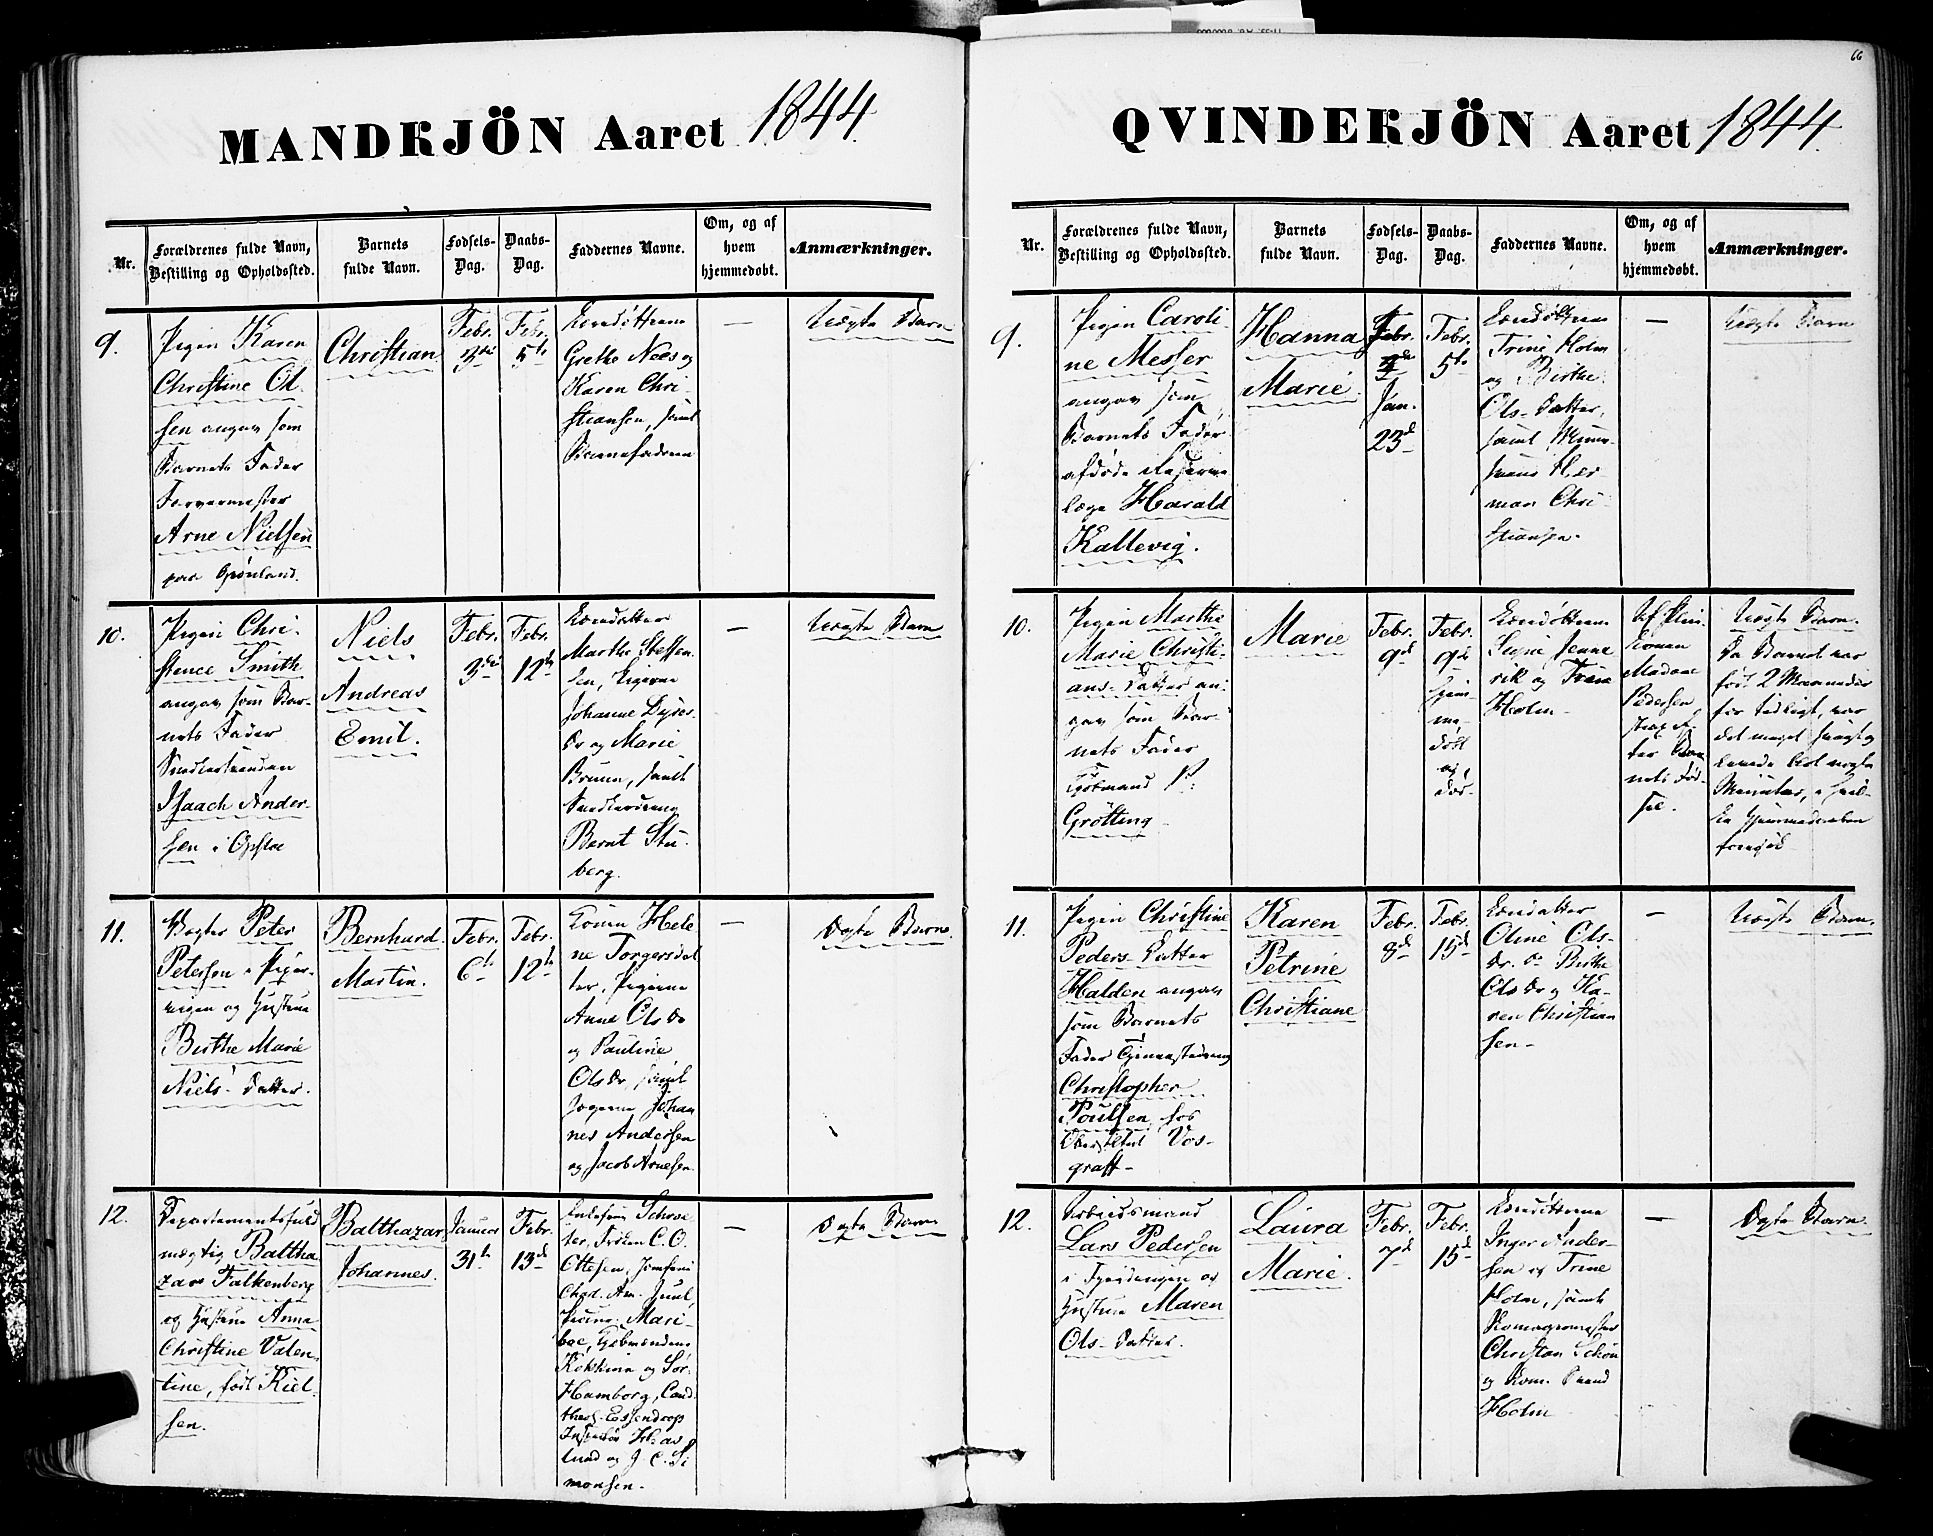 66
MANDKJÖN Aaret 1844.
Nr.
Forældrenes fulde Navn,
Bestilling og Opholdssted.
Barnets
fulde Navn.
Fodsels-
Dag.
Daabs-
Dag.
Faddernes Navne.
Om, og af
hvem
hjemmedøbt.
Anmærkninger.
9.
Pigen Karen
Christine Ol
sen angav som
Barnets Fader
Farvermester
Arne Nielsen
paa Grønland.
Christian
Febr.
3die
Febr.
5te
Grethe Næs og
Karen Chri-
stiansen, samt
Barnefaderen
—
Uægte Barn
10.
Pigen Chri-
stence Smith
angav som Bar-
nets Fader
Snedkersvenden
Isaach Ander-
sen i Opsloe
Niels
Andreas
Emil.
Febr.
3die
Febr.
12te
Marthe Steffen-
sen, Pigerne
Johanne Dyres-
Dr og Marie
Bruun, samt
Snedkerdreng
Bernt Stu-
berg.
—
Uægte Barn
11.
Vogter Peter
Petersen i Piper-
vigen og Hustrue
Birthe Marie
Niels-Datter.
Bernhard
Martin.
Febr.
6te
Febr.
12te
Konen Hele
ne Torgersdat
ter, Pigerne
Anne Ols Dr
og Pauline
Ols Dr, samt
Johan
nes Andersen
og Jacob Arnesen
—
Ægte Barn.
12.
Departementsfuld
mægtig Baltha
zar Falkenberg
og Hustrue Anna
Christine Valen-
tine, født Niel-
sen.
Balthazar
Johannes.
Januar
31te
Febr.
13de
Schroe
ter, Frøken C. O.
Ottesen, Jomfru
Chad. Am. Juul,
Mari-
boe, Kjøbmændene
Kokkim og Sør.
Hamborg, Cand
theol. Essendrop
lund og J. C. Si
monsen.
—
Ægte Barn
QVINDERJÖN Aaret 1844.
Nr.
Forældrenes fulde Navn,
Bestilling og Opholdssted.
Barnets
fulde Navn.
Fodsels-
Dag.
Daabs-
Dag.
Faddernes Navne.
Om, og af
hvem
hjemmedøbt.
Anmærkninger.
9.
Pigen Caroli-
ne Messer
angav som
Barnets Fader
afdøde Reserve
læge Harald
Kallevig.
Hanna
Marie.
Febr.
Jan.
23de
Febr.
5te
Trine Holm
og Birthe
Ols-Datter,
samt
Her
man Chri-
stiansen.
—
Uægte Barn
10.
Pigen Marthe
Marie Christi-
ans-Datter an-
gav som Bar-
nets Fader
Kjøbmand P.
Grötting
Marie
Febr.
9de
Febr.
9de
hjem-
me-
døbt
Jenne
rik og Trine
Holm
Af
Konen
Madame
Pedersen,
strax ef-
ter Bar-
nets Fød-
sel.
Uægte Barn.
Da Barnet var
født 2 Maaneder
for tidligt, var
det meget svagt og
levede blot nogle
Minutter
11.
Pigen Christine
Peders Datter
Halden angav
som Barnets
Fader Tjenestedreng
Christopher
Poulsen, hos
Vos-
graff-
Karen
Petrine
Christiane
Febr.
8de
Febr.
15de
Oline Ols-
Dr. Birthe
Ols Dr og Ka-
ren Christian
sen-
—
Uægte Barn.
12.
Arbeidsmand
Lars Pedersen
i Fjerdingen og
Hustrue Maren
Ols-Datter.
Laura
Marie.
Febr.
7de
Febr.
15de
Inger Ander-
sen og Trine
Holm, samt
Christian Schøn
og
Holm
—
Ægte Barn.